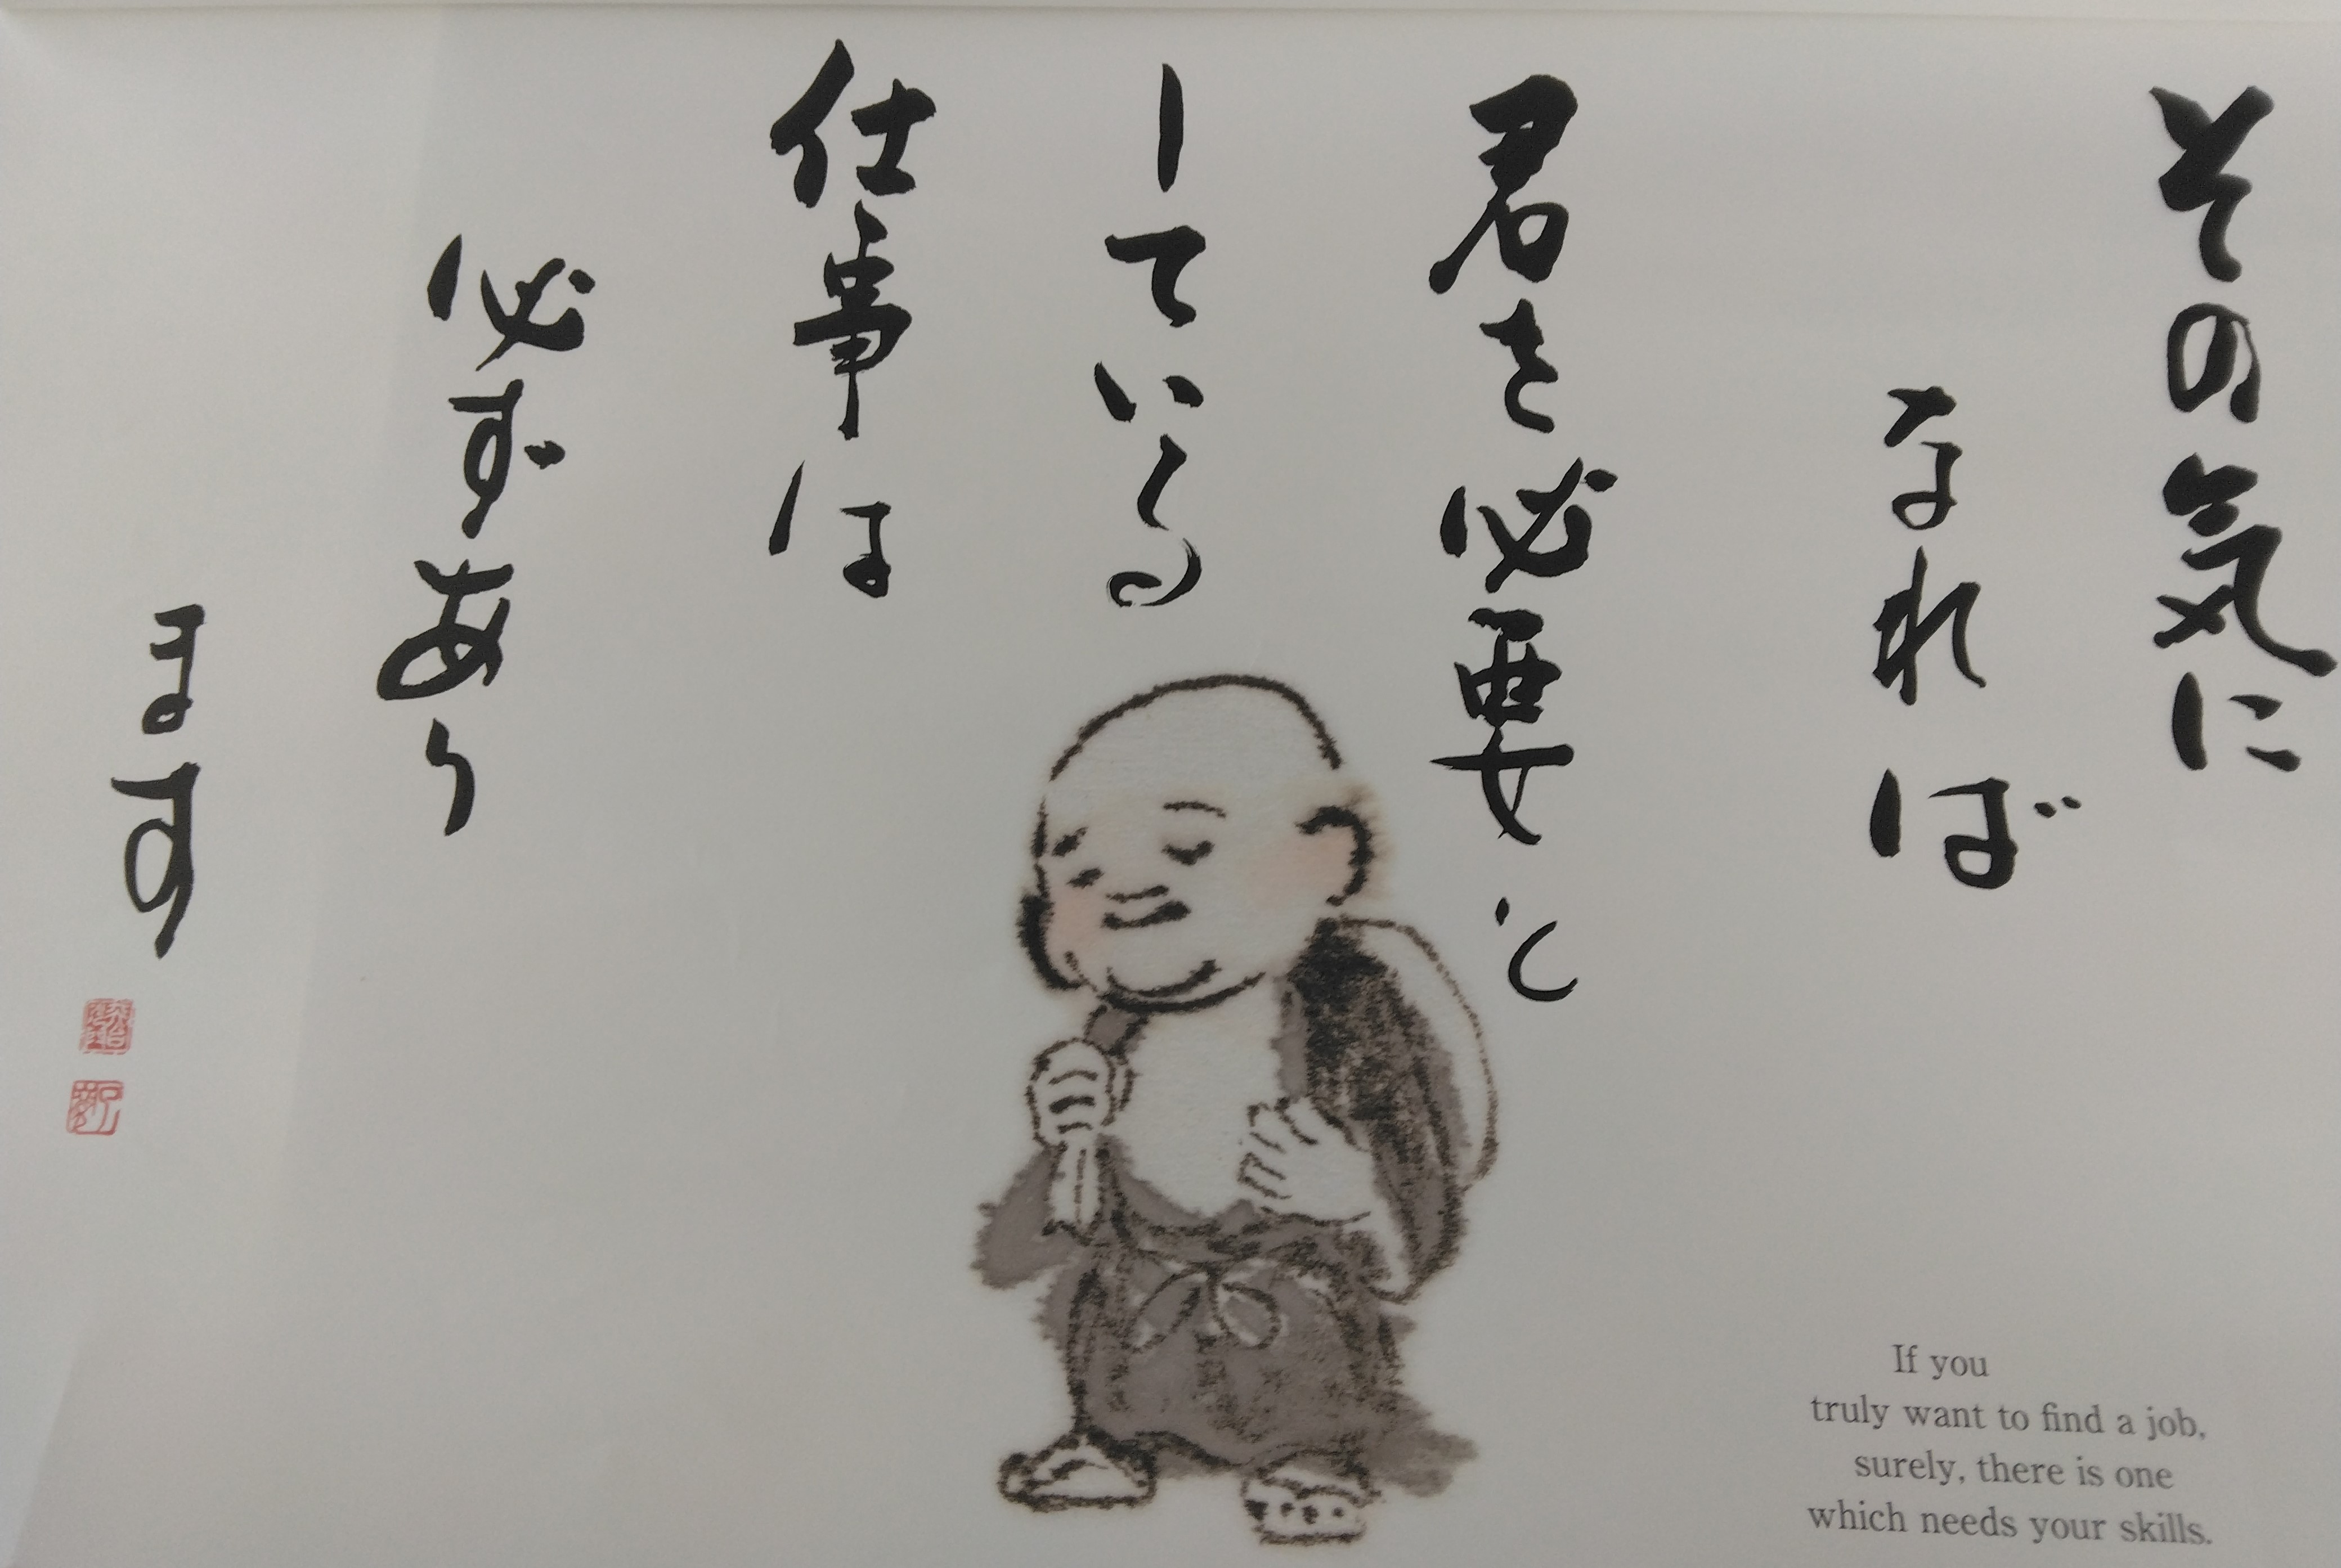 その気に
なれば
君を必要と
している
仕事は
必ずあり
ます
If you
truly want to find a job,
surely, there is one
which needs your skills.